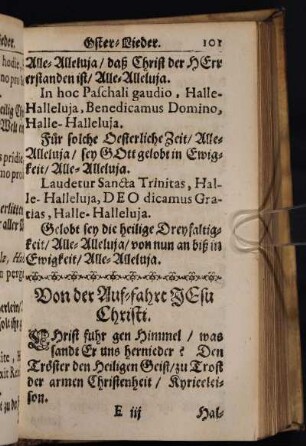 Oster-Lieder. 101
Alle-Alleluja/ daß Christ der HErr
erstanden ist/ Alle-Alleluja.
In hoc Paschali gaudio, Halle-
Halleluja, Benedicamus Domino,
Halle-Halleluja.
Für solche Oesterliche Zeit/ Alle-
Alleluja/ sey GOtt gelobt in Ewig-
keit/ Alle-Alleluja.
Laudetur Sancta Trinitas, Hal-
le-Halleluja, DEO dicamus Gra-
tias, Halle-Halleluja.
Gelobt sey die heilige Dreyfaltig-
keit/ Alle-Alleluja/ von nun an biß in
Ewigkeit/ Alle-Alleluja.
Von der Auf-fahrt JEsu
Christi.
CHrist fuhr gen Himmel / was
sandt Er uns hernieder? Den
Tröster den Heiligen Geist/ zu Trost
der armen Christenheit / Kyrieelei-
son.
E iij Hal-